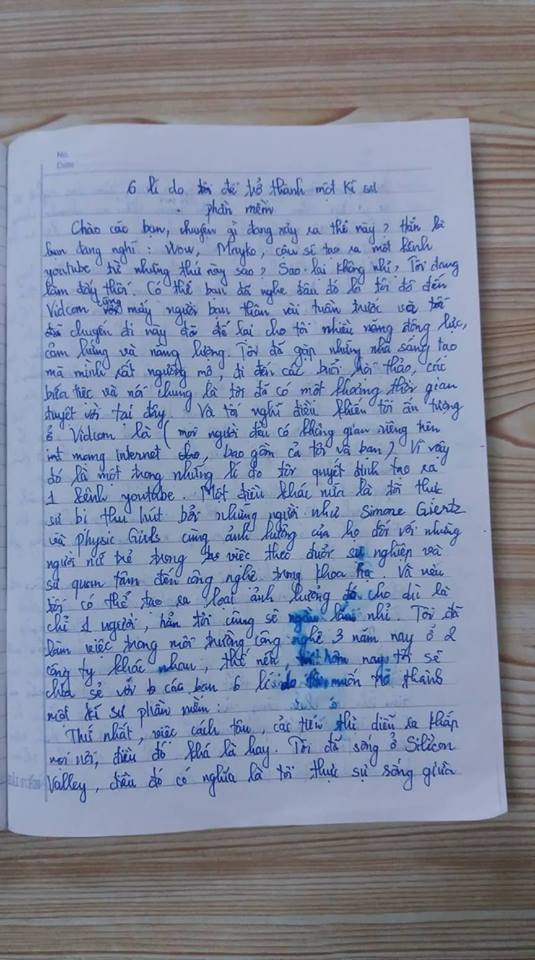 No.
Date
6 lí do tôi để trở thành một kĩ sư
phần mềm
Chào các bạn, chuyện gì đang xảy ra thế này? Hẳn là
bạn đang nghĩ: Wow, Mayko, cậu sẽ tạo ra một kênh
youtube từ những thứ này sao? Sao lại không nhỉ, Tôi đang
làm đấy thôi. Có thể bạn đã nghe đâu đó là tôi đã đến
Vidcon cùng mấy người bạn thân vài tuần trước và
chuyến đi này đã để lại cho tôi nhiều nguồn động lực,
cảm hứng và năng lượng. Tôi đã gặp những nhà sáng tạo
mà mình rất ngưỡng mộ, đi đến các buổi hội thảo, các
bữa tiệc và nói chung là tôi đã có một khoảng thời gian
tuyệt vời tại đây. Và tôi nghĩ điều khiến tôi ấn tượng
ở Vidcon là (mọi người đều có không gian riêng trên
mạng internet, bao gồm cả tôi và bạn) Vì vậy
đó là một trong những lí do tôi quyết định tạo ra
1 kênh youtube. Một điều khác nữa là tôi thực
sự bị thu hút bởi những người như Simone Giertz
và Physic Girls cùng ảnh hưởng của họ đối với những
người nữ trẻ trong việc theo đuổi sự nghiệp và
sự quan tâm đến công nghệ trong khoa học. Và nếu
tôi có thể tạo ra loại ảnh hưởng đó cho dù là
chỉ 1 người, hẳn tôi cũng sẽ ngầu lắm nhỉ. Tôi đã
làm việc trong môi trường công nghệ 3 năm nay ở 2
công ty khác nhau, thế nên, hôm nay tôi sẽ
chia sẻ với các bạn 6 lí do tôi muốn trở thành
một kĩ sư phần mềm:
Thứ nhất, việc cách tân, cải tiến thì diễn ra khắp
mọi nơi, điều đó khá là hay. Tôi đã sống ở Silicon
Valley, điều đó có nghĩa là tôi thực sự sống giữa